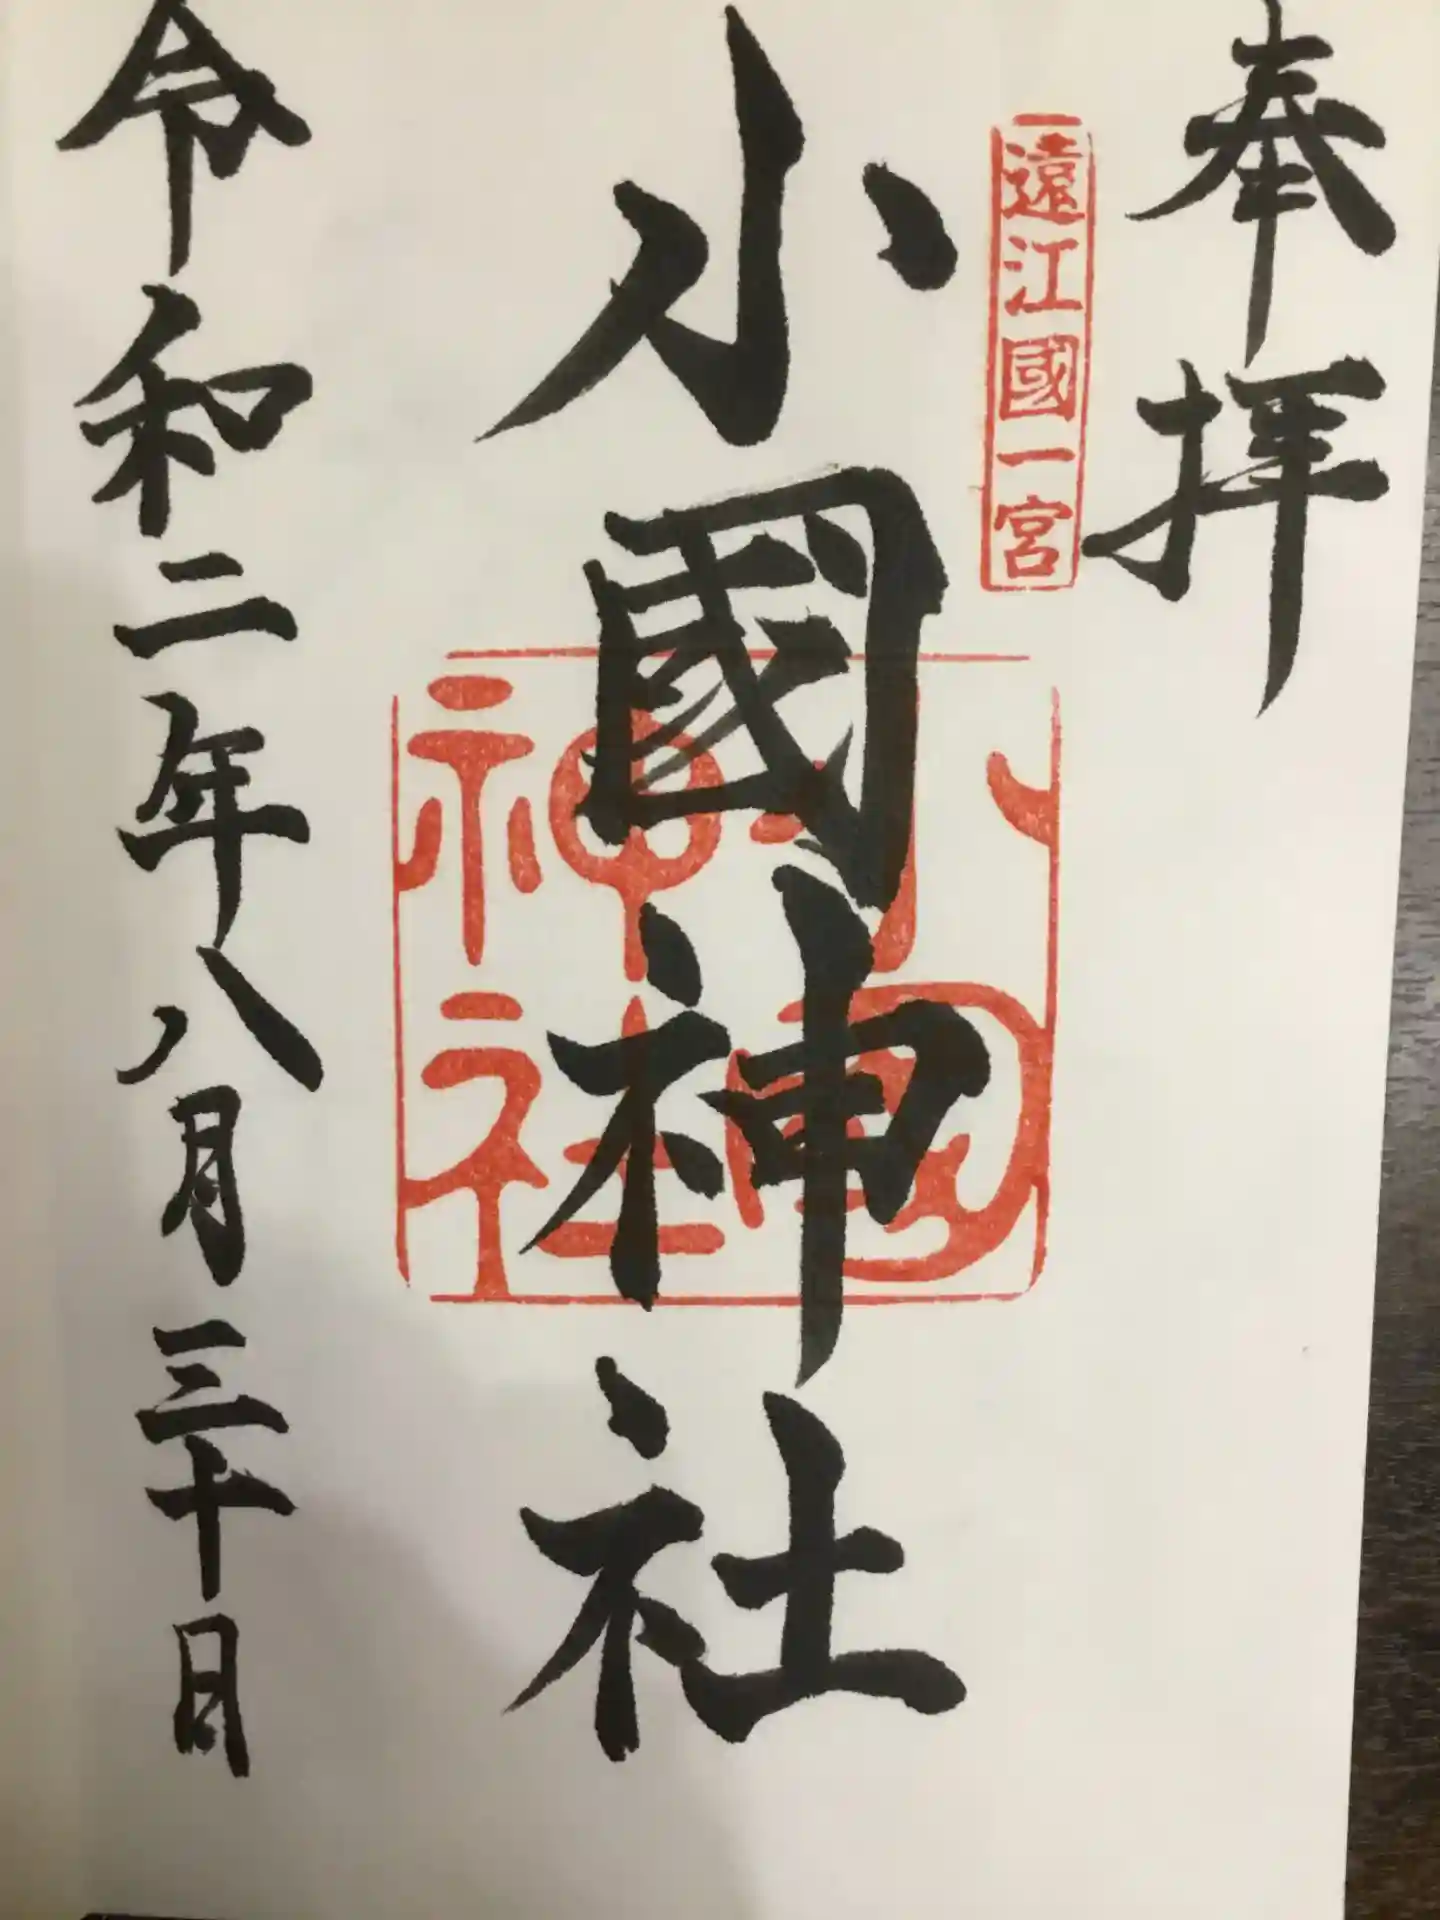 奉拝
遠江國一宮
小國神社
小國
神社
令和二年八月三十日